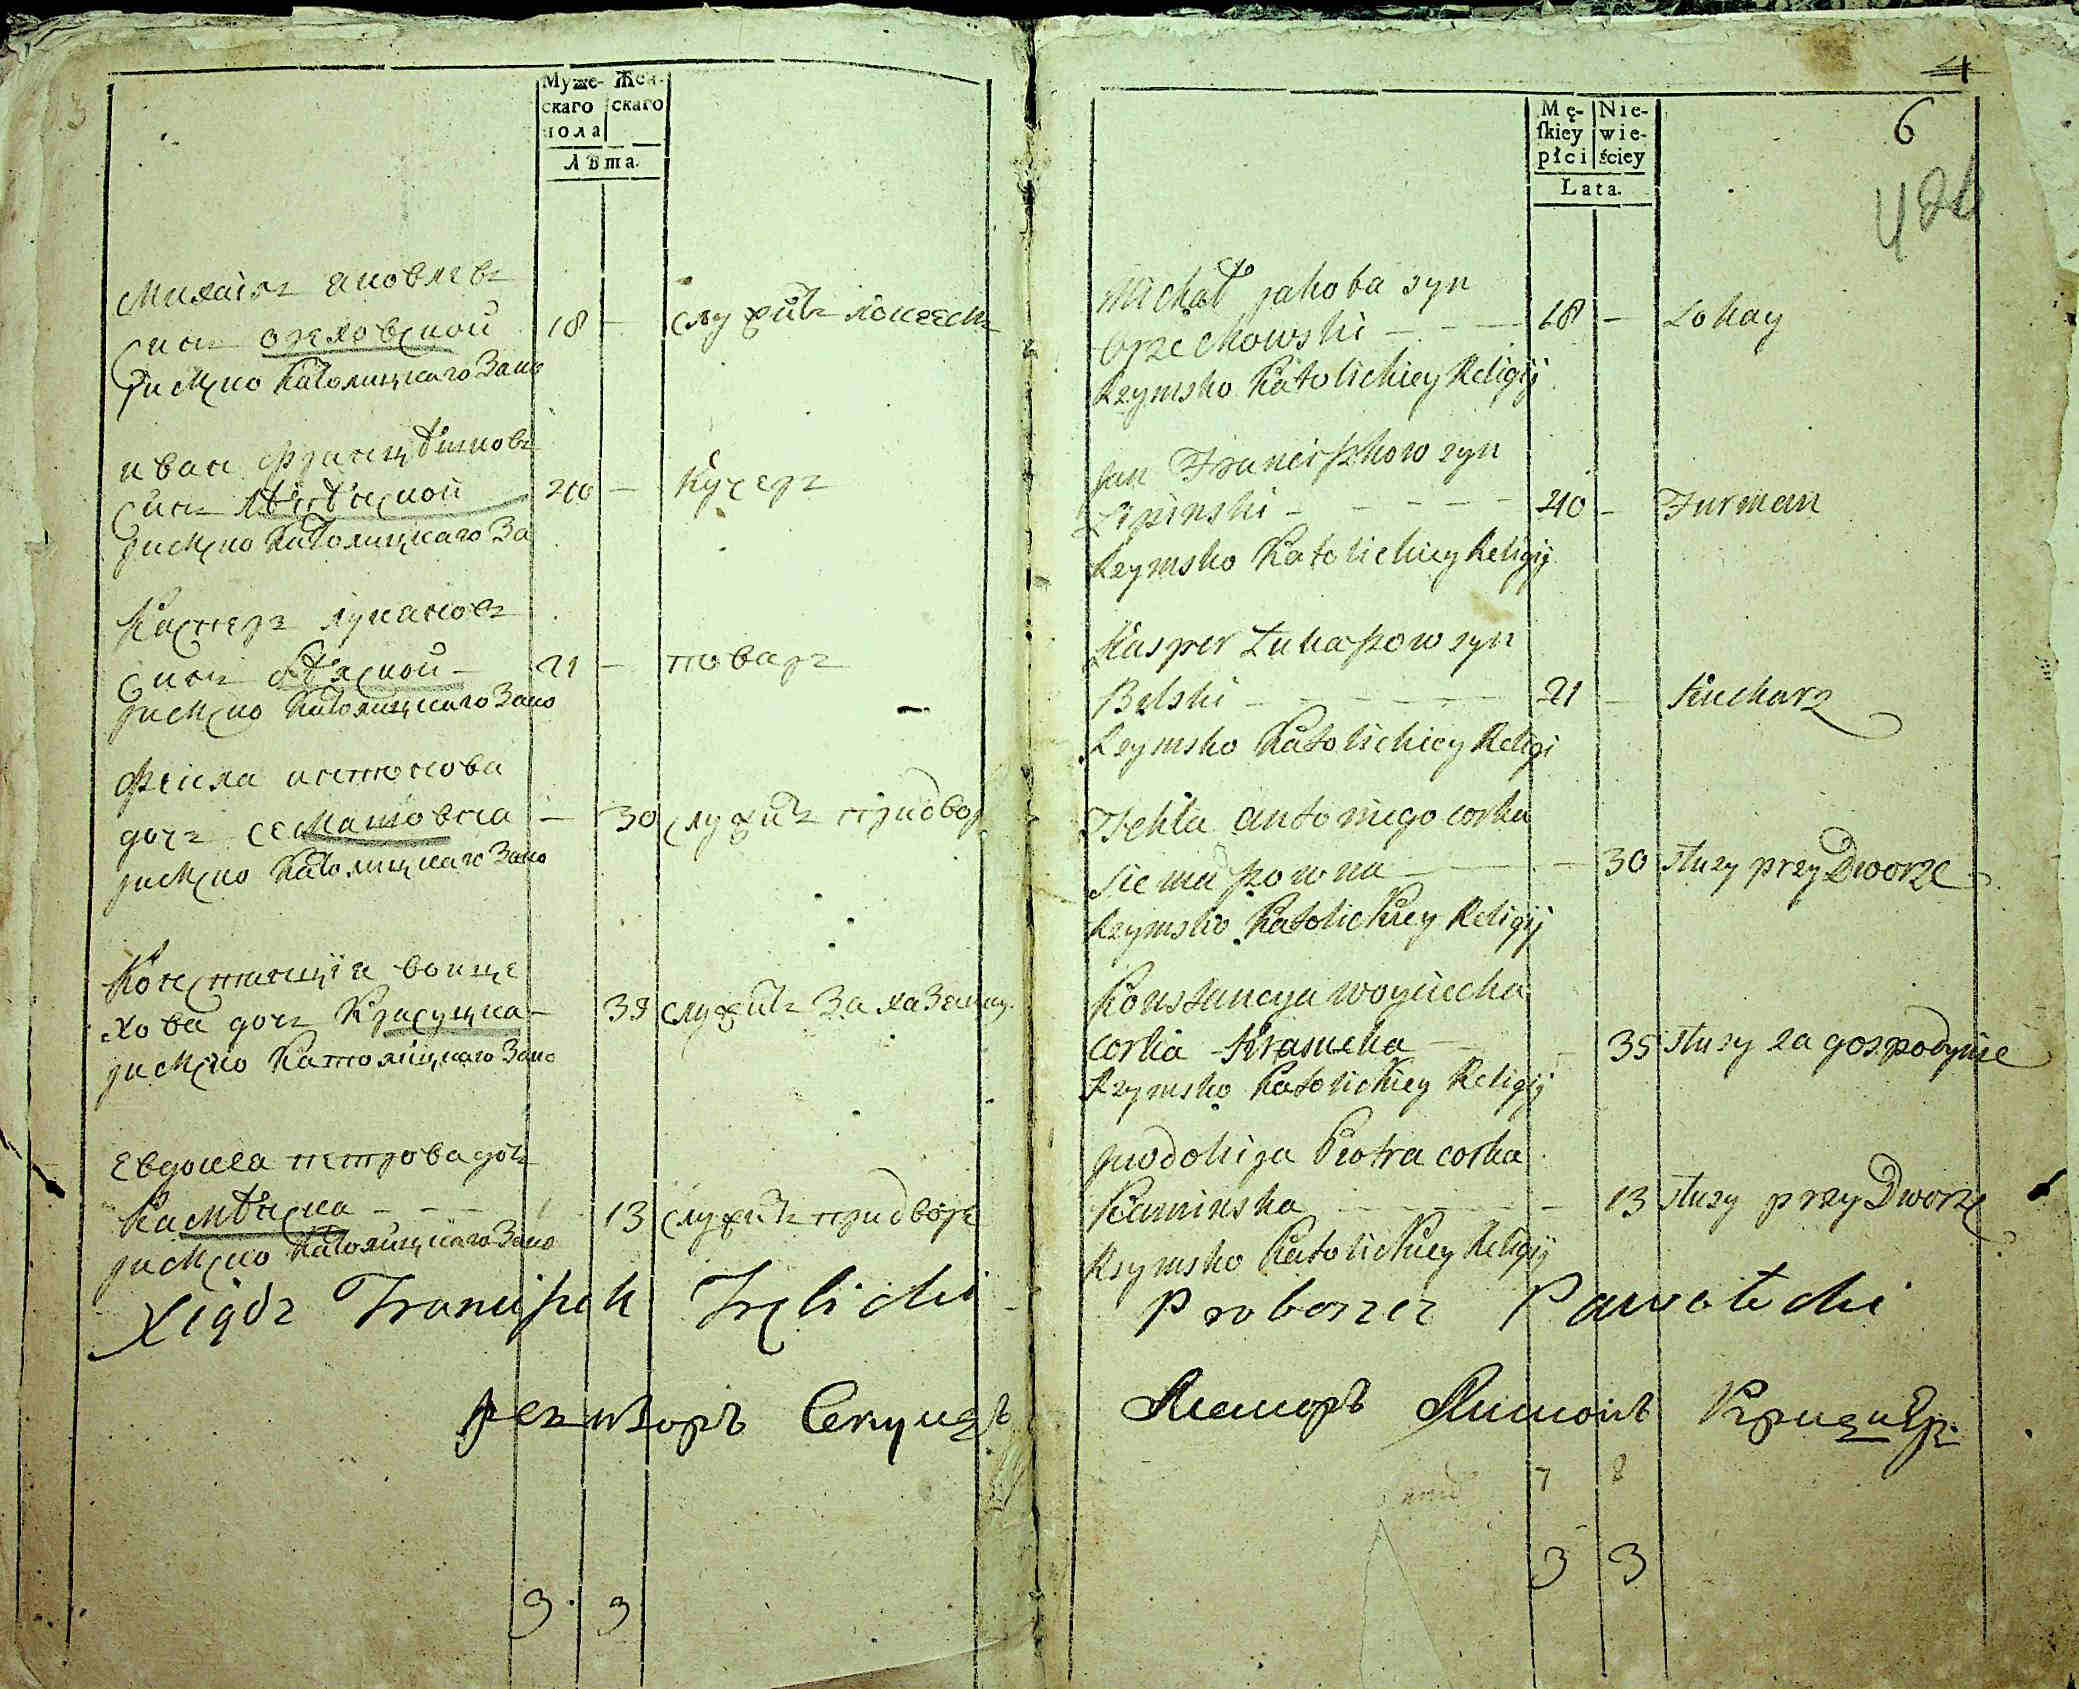 Муже- Жен-
скаго скаго
пола
Лѣта.
Михаілъ яковлевъ
синъ ореховскои 18 — служитъ локеемъ
римско католицкаго Зако
иванъ францѣшковъ
синъ лѣпѣнскои 20 — кучеръ
римско католицкаго За
Касперъ лукашовъ
синъ бѣлскои — 21 — поваръ
римско католицкаго Зако
Фекла антонова
дочъ семашовна — 30 служитъ придвор
римско католицкаго Зако
Констанція воице
хова дочъ Красуцка — 35 служитъ За хазяику
римско католицкаго Зако
Евдокея петрова дочъ
Камѣнска — — — 13 служитъ придворе
римско католицкаго Зако
Xiądz Franciszek
3 3
4
6
Mę- Nie-
skiey wie-
płci ściey
Lata.
Michał Jakoba syn
Orzechowski — — — 18 — Lokay
Rzymsko Katolickiey Religij
Jan Franciszkow syn
Lipinski — — — — 20 — Furman
Rzymsko Katolickiey Religij
Kasper Lukaszow syn
Belski — — — — 21 — Kucharz
Rzymsko Katolickiey Religi
Tekla antoniego corka
Siemaszowna — — 30 słuzy przy Dworze
Rzymsko Katolickiey Religij
Konstancya woyciecha
corka Krasucka — — 35 słuzy za gospodynie
Rzymsko Katolickiey Religij
Jwdokija Piotra corka
Kaminska — — — 13 słuzy przy Dworze
Rzymsko Katolickiey Religij
Proboszcz Pawołocki
7 8
3 3